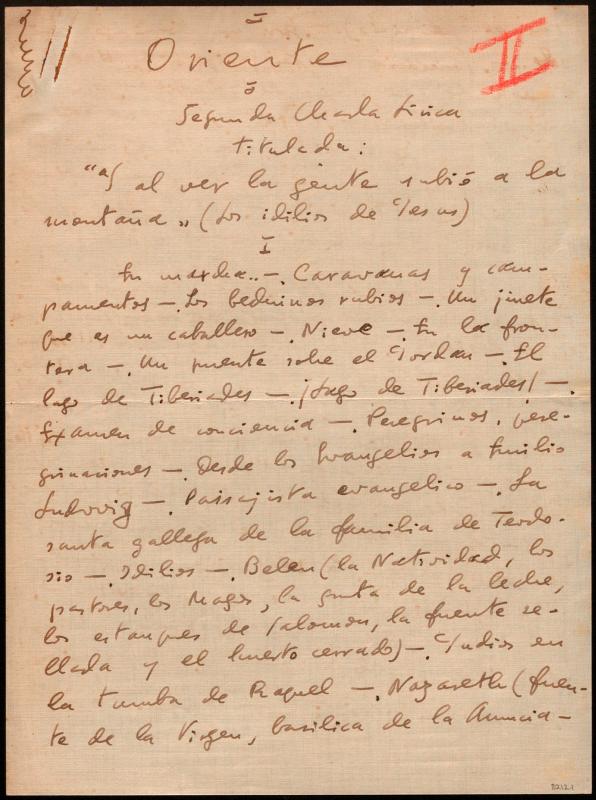 I
II
Oriente
o
Segunda Charla Lírica
titulada:
"al ver la gente subió a la
montaña" (Los idilios de Jesus)
I
En marcha.. —. Caravanas y cam-
pamentos —. Los beduinos rubios —. Un jinete
que es un caballero —. Nieve —. En la fron-
tera —. Un puente sobre el Jordan —. El
lago de Tiberiades —. ¡Lago de Tiberiades! —.
Examen de conciencia —. Peregrinos, pere-
grinaciones —. Desde los Evangelios a Emilio
Ludwig —. Paisajista evangelico —. La
santa gallega de la familia de Teodo-
sio —. Idilios —. Belen (la Natividad, los
pastores, los Magos, la gruta de la leche,
los estanques de Salomon, la fuente se-
llada y el huerto cerrado) —. Judios en
la tumba de Raquel —. Nazareth (fuen-
te de la Virgen, basilica de la Anuncia-